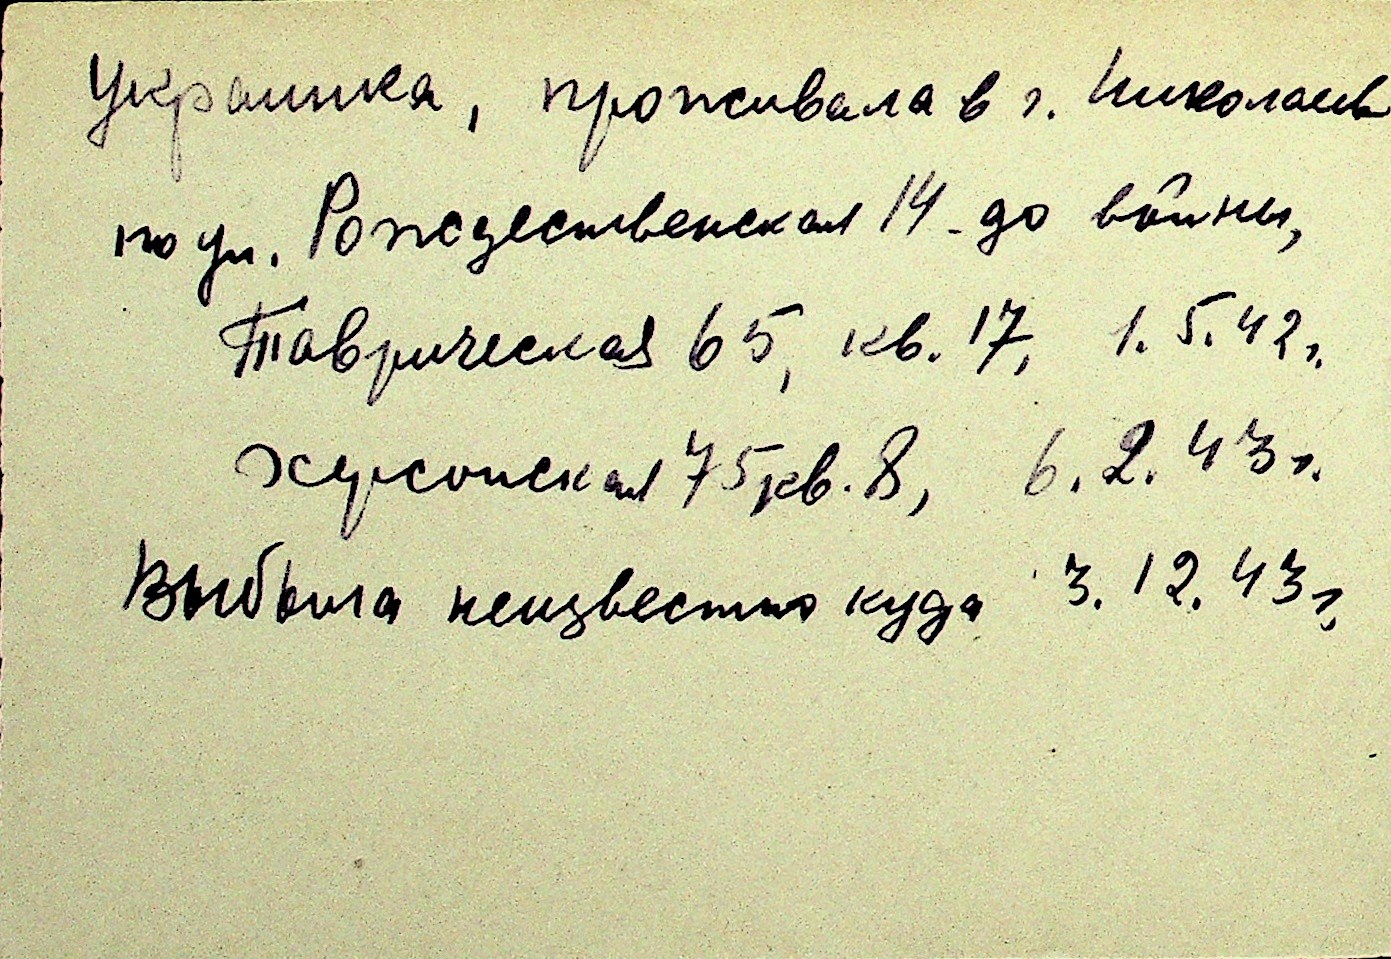 Украинка, проживала в г. Николаев
по ул. Рождественская 14 - до войны,
Таврическая 65, кв. 17, 1.5.42 г.
Херсонская 75, кв. 8, 6.2.43 г.
Выбыла неизвестно куда 3.12.43 г.